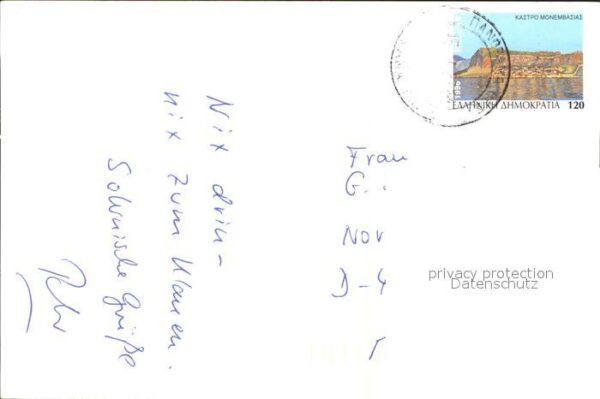 ΚΑΣΤΡΟ ΜΟΝΕΜΒΑΣΙΑΣ
1996
ΕΛΛΗΝΙΚΗ ΔΗΜΟΚΡΑΤΙΑ 120
Nix drin -
nix zum Klauen.
Sohnische Grüße
Frau
G.
Nov
D-4
privacy protection
Datenschutz